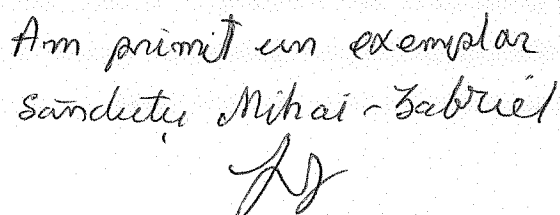 Am primit un exemplar
Sănduțu Mihai-Gabriel